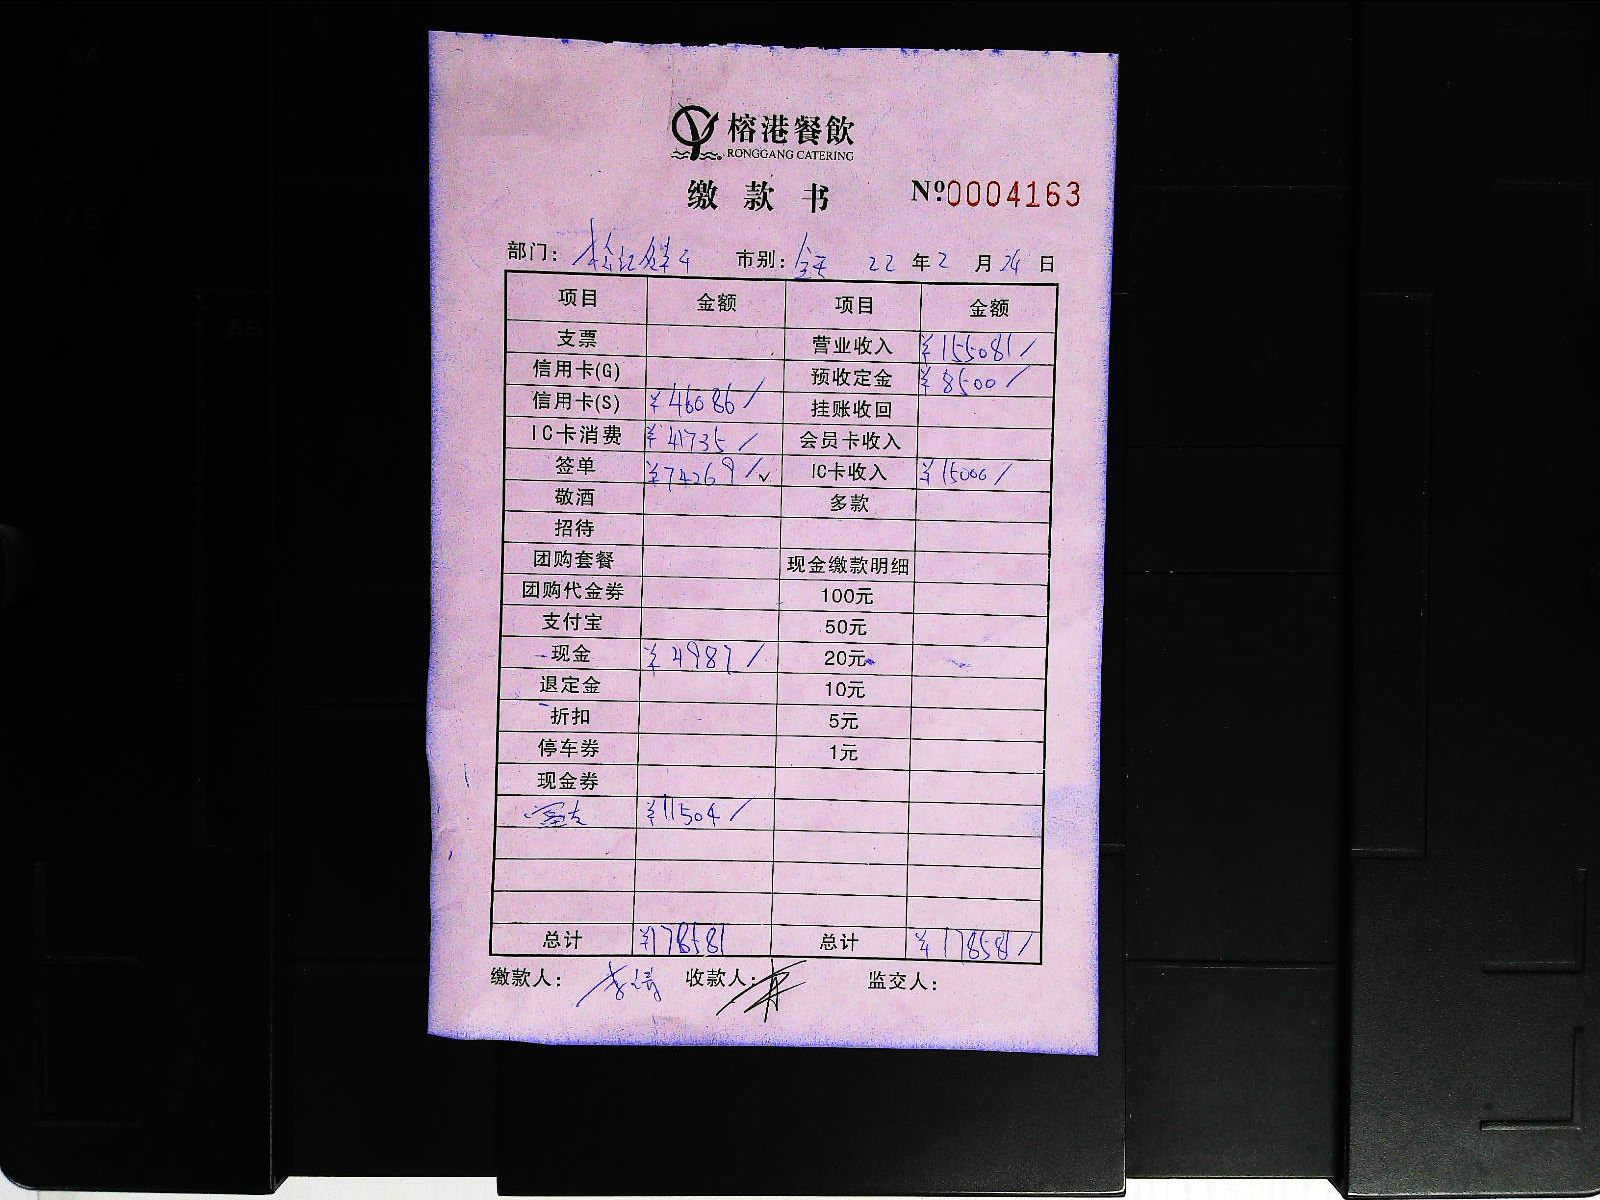 榕港餐飲
RONGGANG CATERING
缴款书 №:0004163
部门: 市别: 全天 22 年 2 月 24 日
项目 金额 项目 金额
支票 营业收入 ¥155081/
信用卡(G) 预收定金 ¥8500/
信用卡(S) ¥46086/ 挂账收回
IC卡消费 ¥41735/ 会员卡收入
签单 ¥74269/✓ IC卡收入 ¥15000/
敬酒 多款
招待
团购套餐 现金缴款明细
团购代金券 100元
支付宝 50元
现金 ¥4987/ 20元
退定金 10元
折扣 5元
停车券 1元
现金券
¥11504/
总计 ¥178581 总计 ¥178581/
缴款人: 收款人: 监交人: